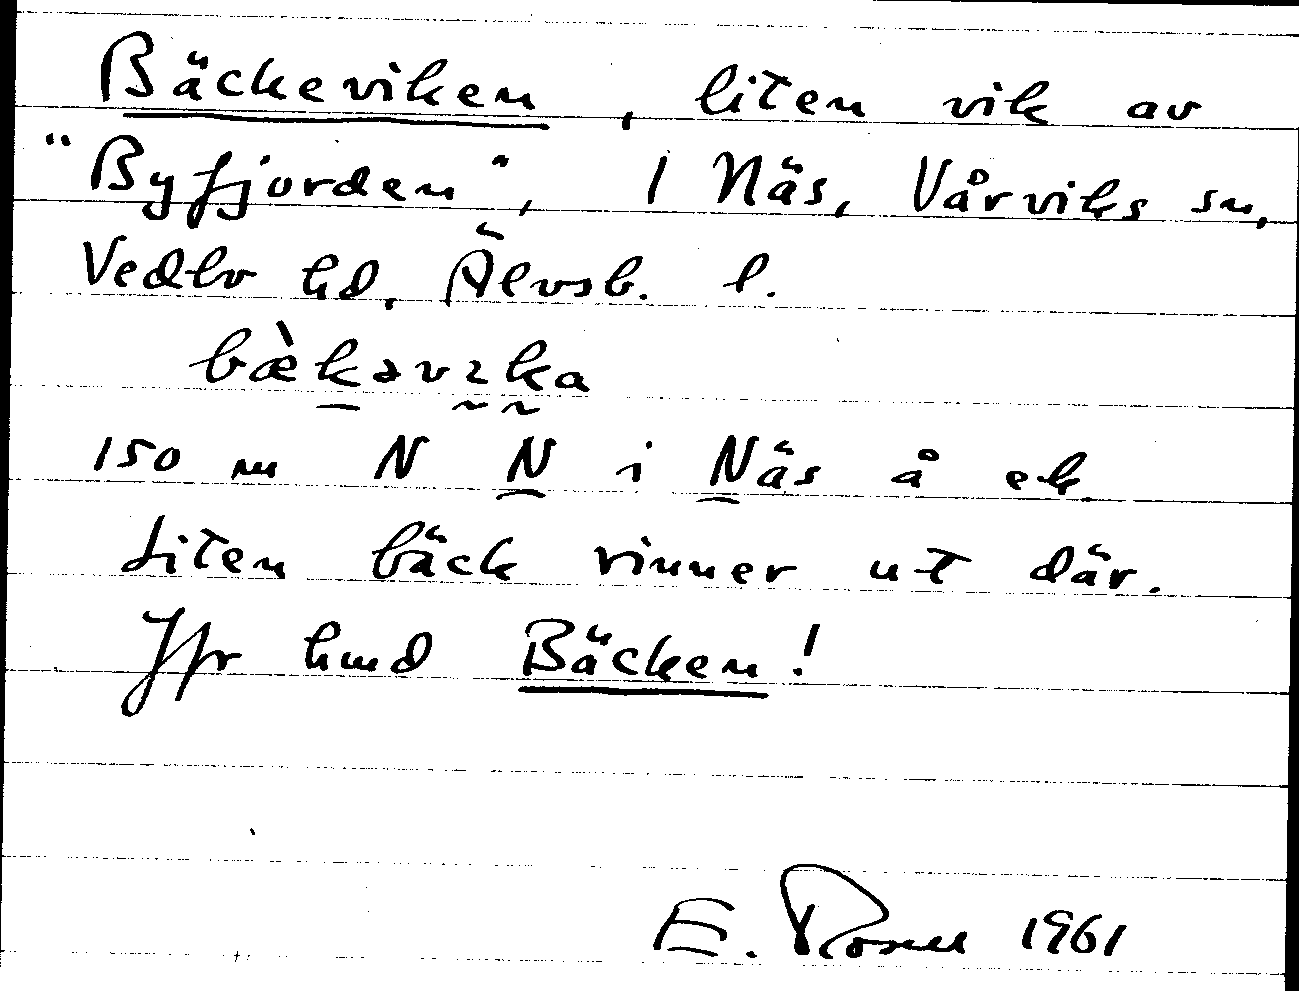 Bäckeviken, liten vik av
"Byfjorden", 1 Näs, Vårviks sn,
Vedbo hd, Älvsb. l.
bæ̀kəvɩka
150 m N N i Näs å ek.
Liten bäck rinner ut där.
Jfr hmd Bäcken!
E. Rosell 1961